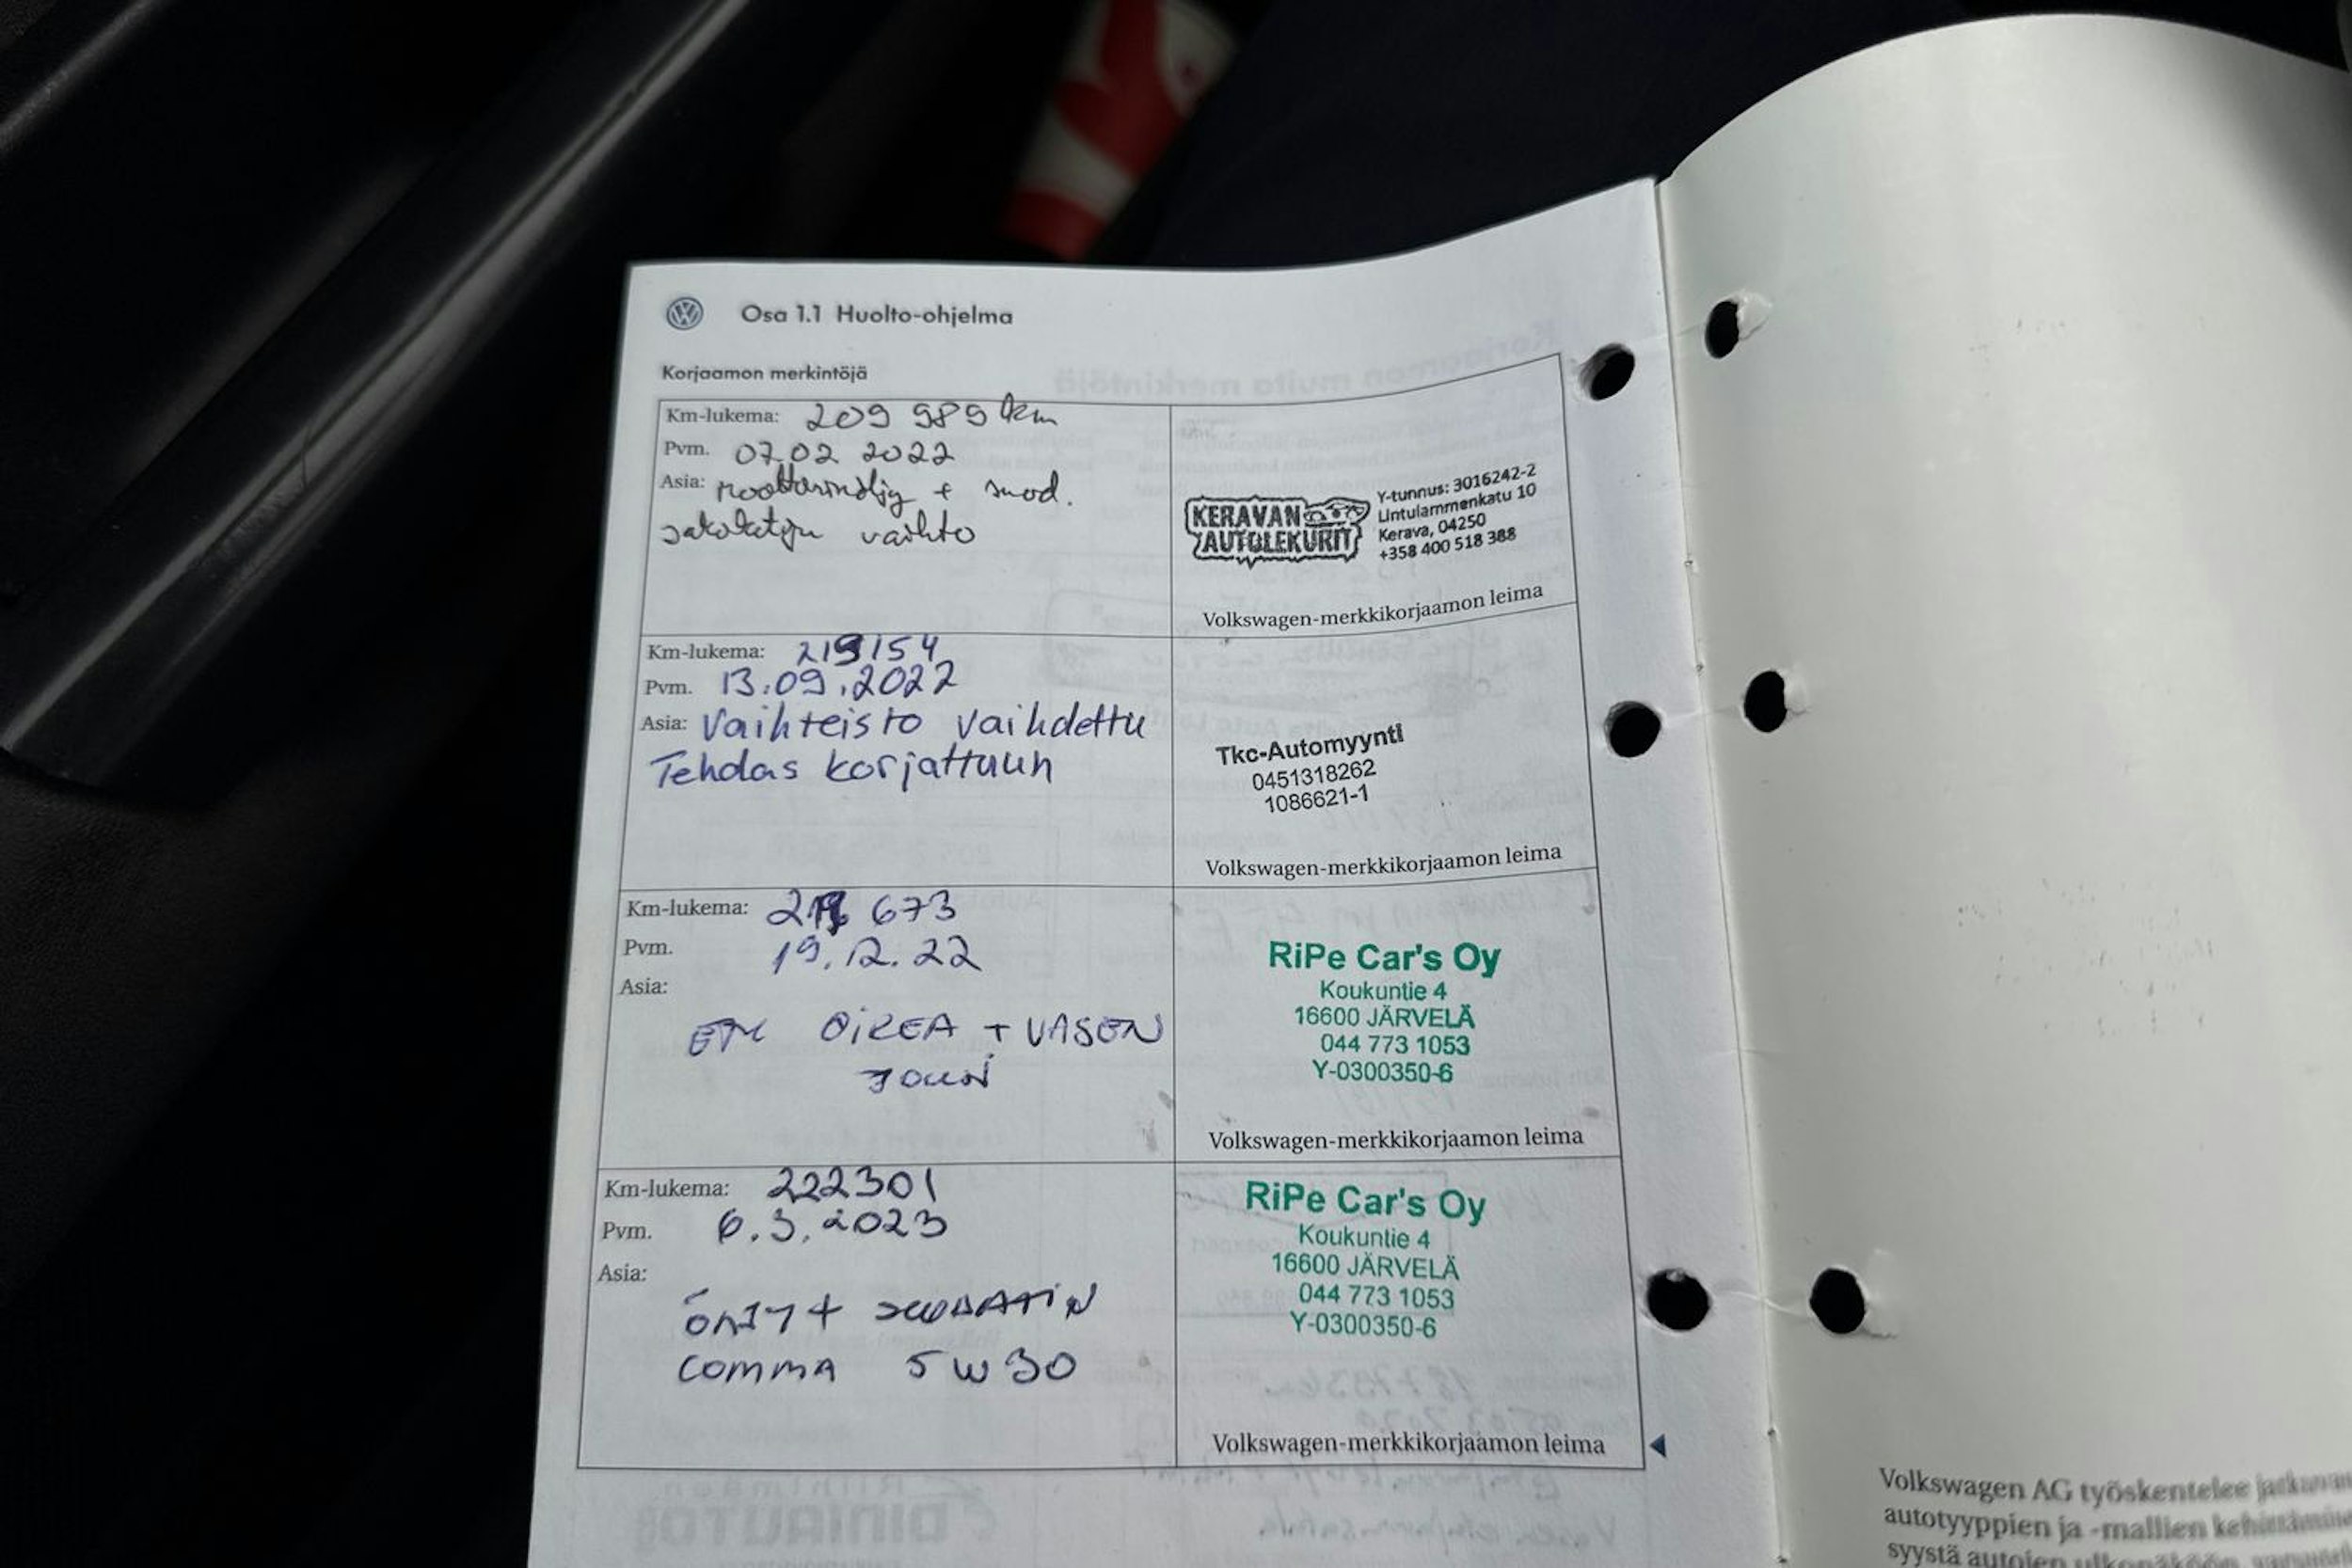 Osa 1.1 Huolto-ohjelma
Korjaamon merkintöjä
Km-lukema: 209 989 km
Pvm. 07.02 2022
Asia: moottoriöljy + suod.
vaihto
KERAVAN
AUTOLEKURIT
Y-tunnus: 3016242-2
Lintulammenkatu 10
Kerava, 04250
+358 400 518 388
Volkswagen-merkkikorjaamon leima
Km-lukema: 219154
Pvm. 13.09.2022
Asia: Vaihteisto vaihdettu
Tehdas korjattuun
Tkc-Automyynti
0451318262
1086621-1
Volkswagen-merkkikorjaamon leima
Km-lukema: 673
Pvm. 19.12.22
Asia:
ETU OIKEA + VASEN
JOUSI
RiPe Car's Oy
Koukuntie 4
16600 JÄRVELÄ
044 773 1053
Y-0300350-6
Volkswagen-merkkikorjaamon leima
Km-lukema: 222301
Pvm. 6.3.2023
Asia:
ÖLJY + SUODATIN
COMMA 5W30
RiPe Car's Oy
Koukuntie 4
16600 JÄRVELÄ
044 773 1053
Y-0300350-6
Volkswagen-merkkikorjaamon leima
Volkswagen AG työskentelee
autotyyppien ja -mallien
syystä autojen